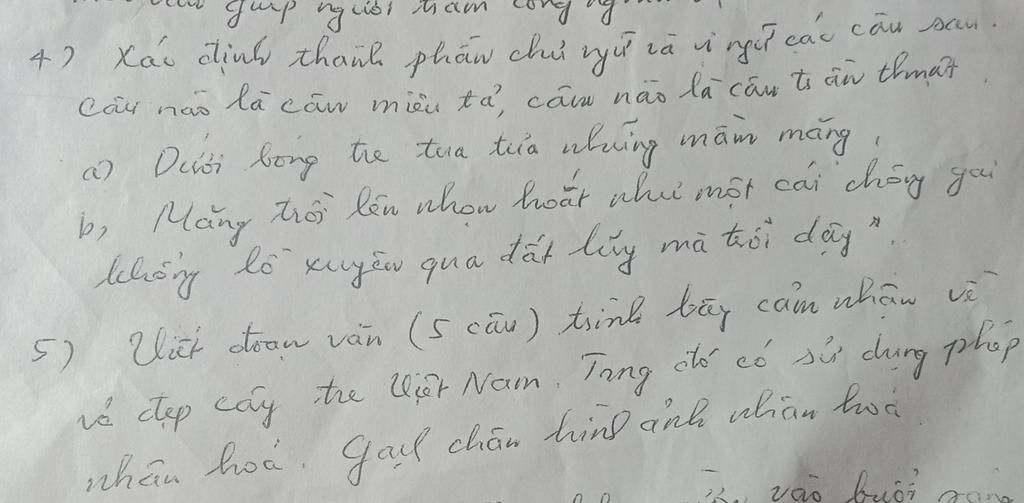 giúp người trám công
4) Xác định thành phần chủ ngữ và vị ngữ các câu sau.
Câu nào là câu miêu tả, câu nào là câu trần thuật.
a) Dưới bóng tre tua tủa những mầm măng,
b, Măng trồi lên nhọn hoắt như một cái chông gai
khổng lồ xuyên qua đất lũy mà trỗi dậy".
5) Viết đoạn văn (5 câu) trình bày cảm nhận về
vẻ đẹp cây tre Việt Nam. Trong đó có sử dụng phép
nhân hoá. Gạch chân hình ảnh nhân hoá
vào buổi